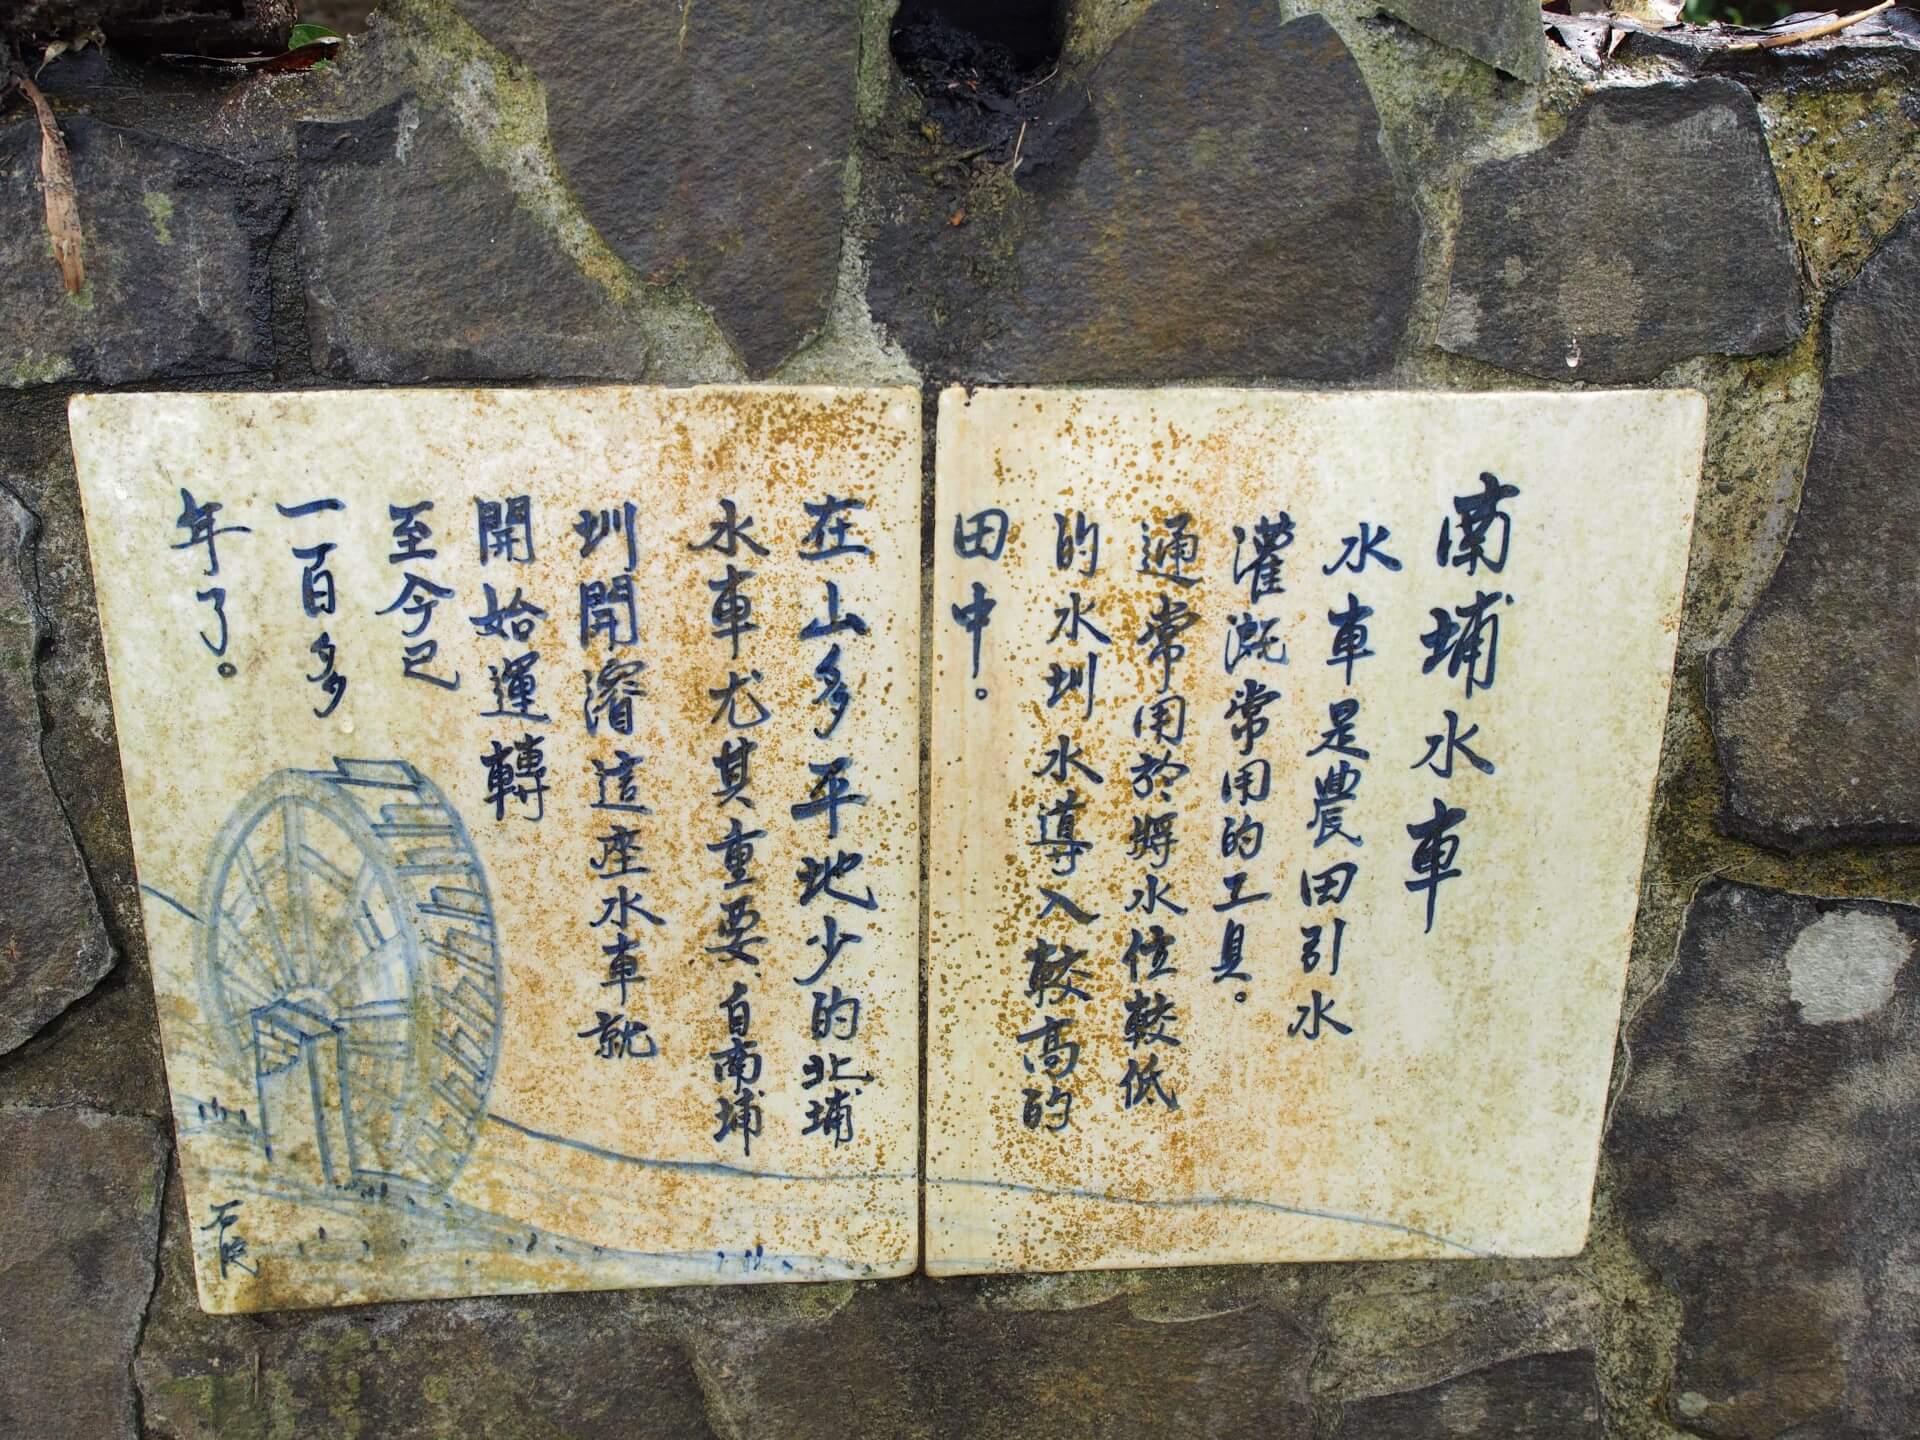 南埔水車
水車是農田引水
灌溉常用的工具。
通常用於將水位較低
的水圳水導入較高的
田中。
在山多平地少的北埔
水車尤其重要、自南埔
圳開濬這座水車就
開始運轉
至今已
一百多
年了。